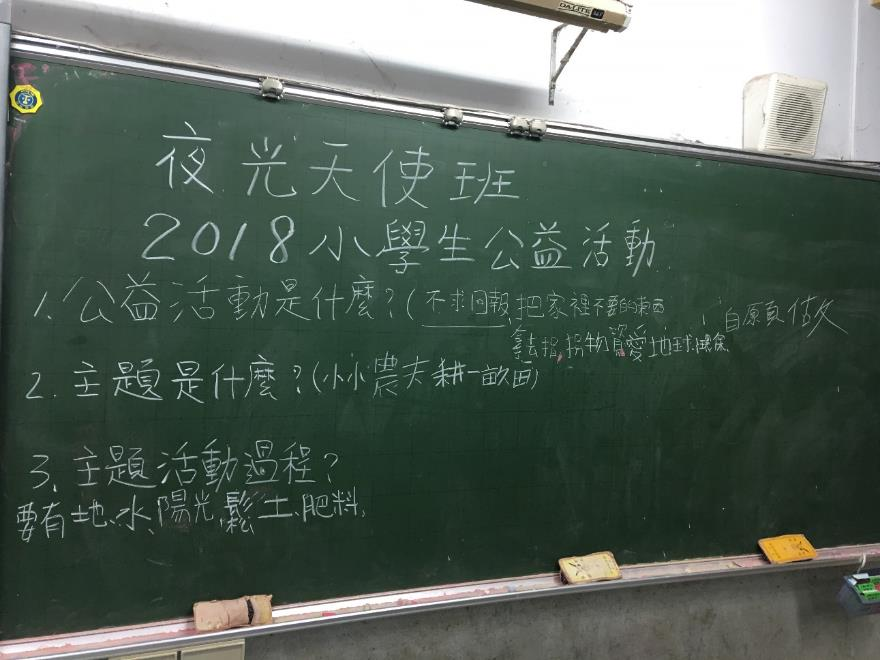 夜光天使班
2018小學生公益活動
1.公益活動是什麼?(不求回報,把家裡不要的東西
自願
拿去捐,捐物資愛地球,環保
2.主題是什麼?(小小農夫耕一畝田)
3.主題活動過程?
要有地、水、陽光、鬆土、肥料,
DA-LITE